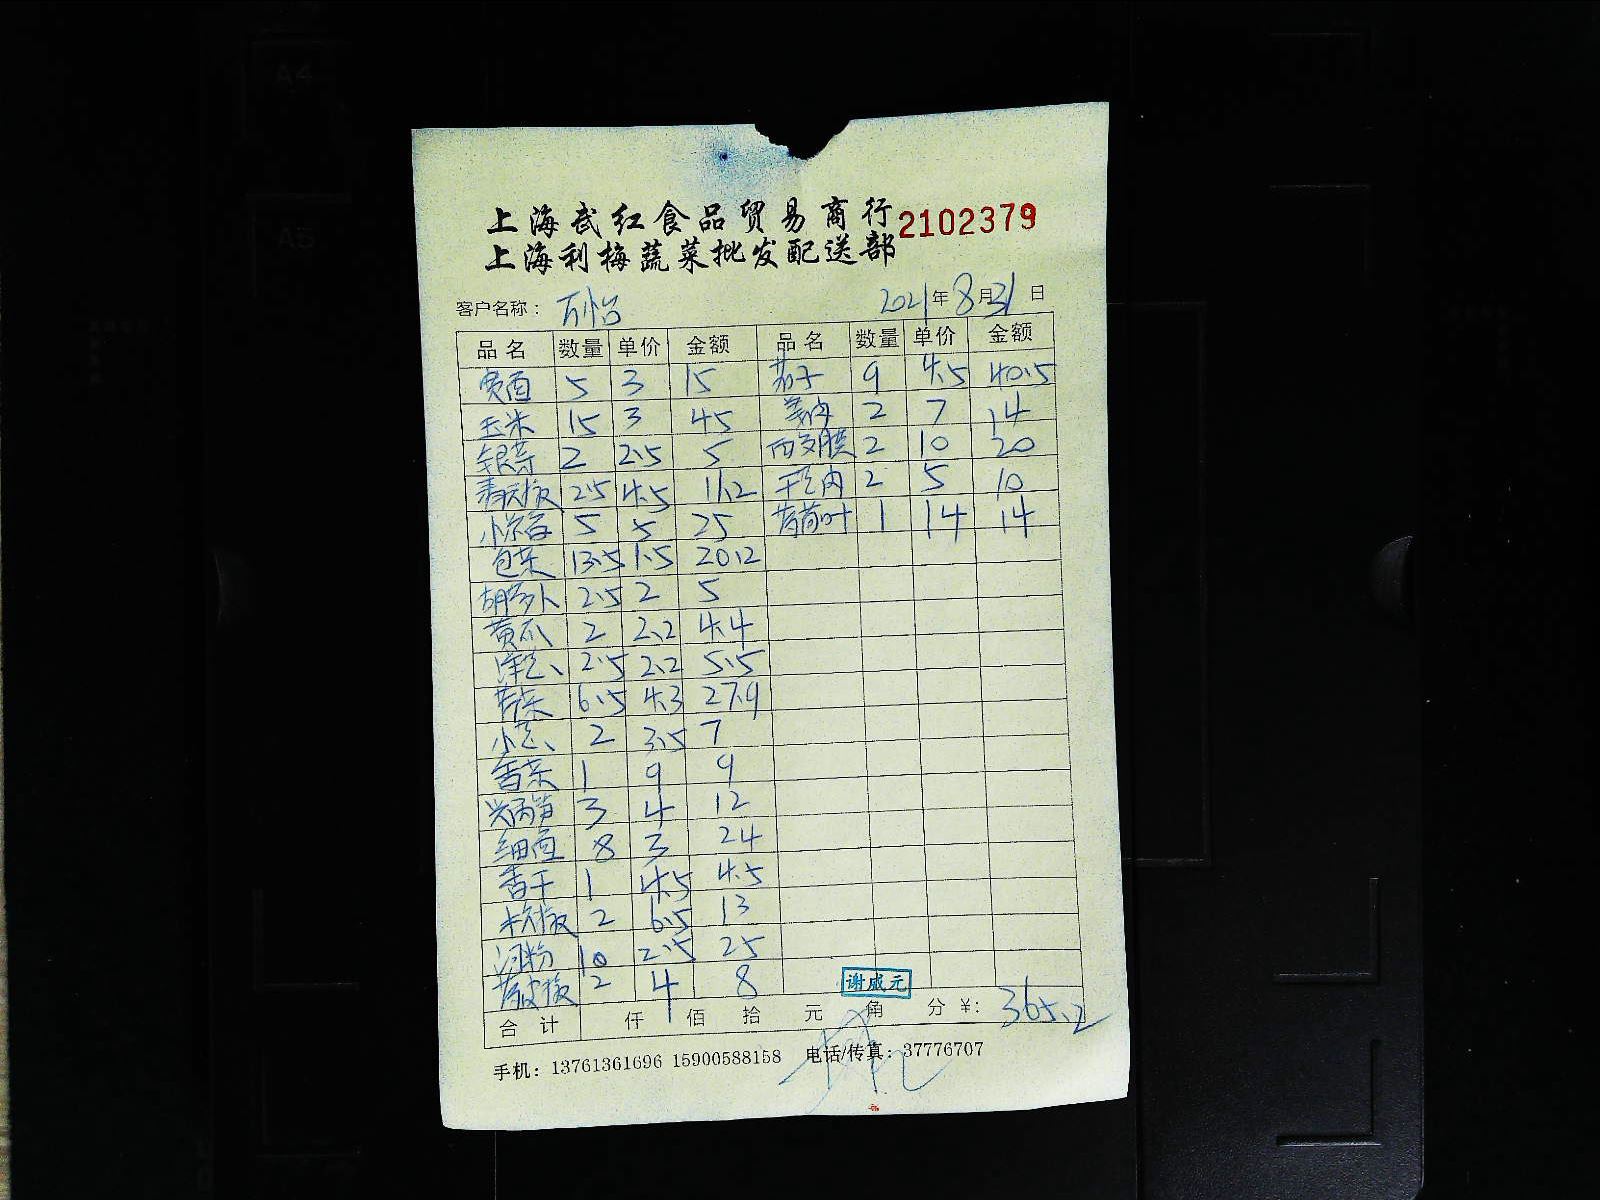 上海武红食品贸易商行 2102379
上海利梅蔬菜批发配送部
客户名称: 万怡 2021年8月31日
品名 数量 单价 金额 品名 数量 单价 金额
5 3 15 茄子 9 4.5 40.5
玉米 15 3 45 2 7 14
银芽 2 2.5 5 2 10 20
2.5 4.5 11.2 2 5 10
5 5 25 1 14 14
包菜 13.5 1.5 20.2
胡萝卜 2.5 2 5
黄瓜 2 2.2 4.4
洋葱 2.5 2.2 5.5
6.5 4.3 27.9
小葱 2 3.5 7
香菜 1 9 9
3 4 12
细面 8 3 24
香干 1 4.5 4.5
2 6.5 13
河粉 10 2.5 25
2 4 8
谢成元
合计 仟 佰 拾 元 角 分 ¥: 365.2
手机: 13761361696 15900588158 电话/传真: 37776707